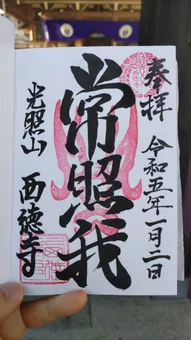 奉拝
令和五年一月二日
常照我
光照山
西徳寺